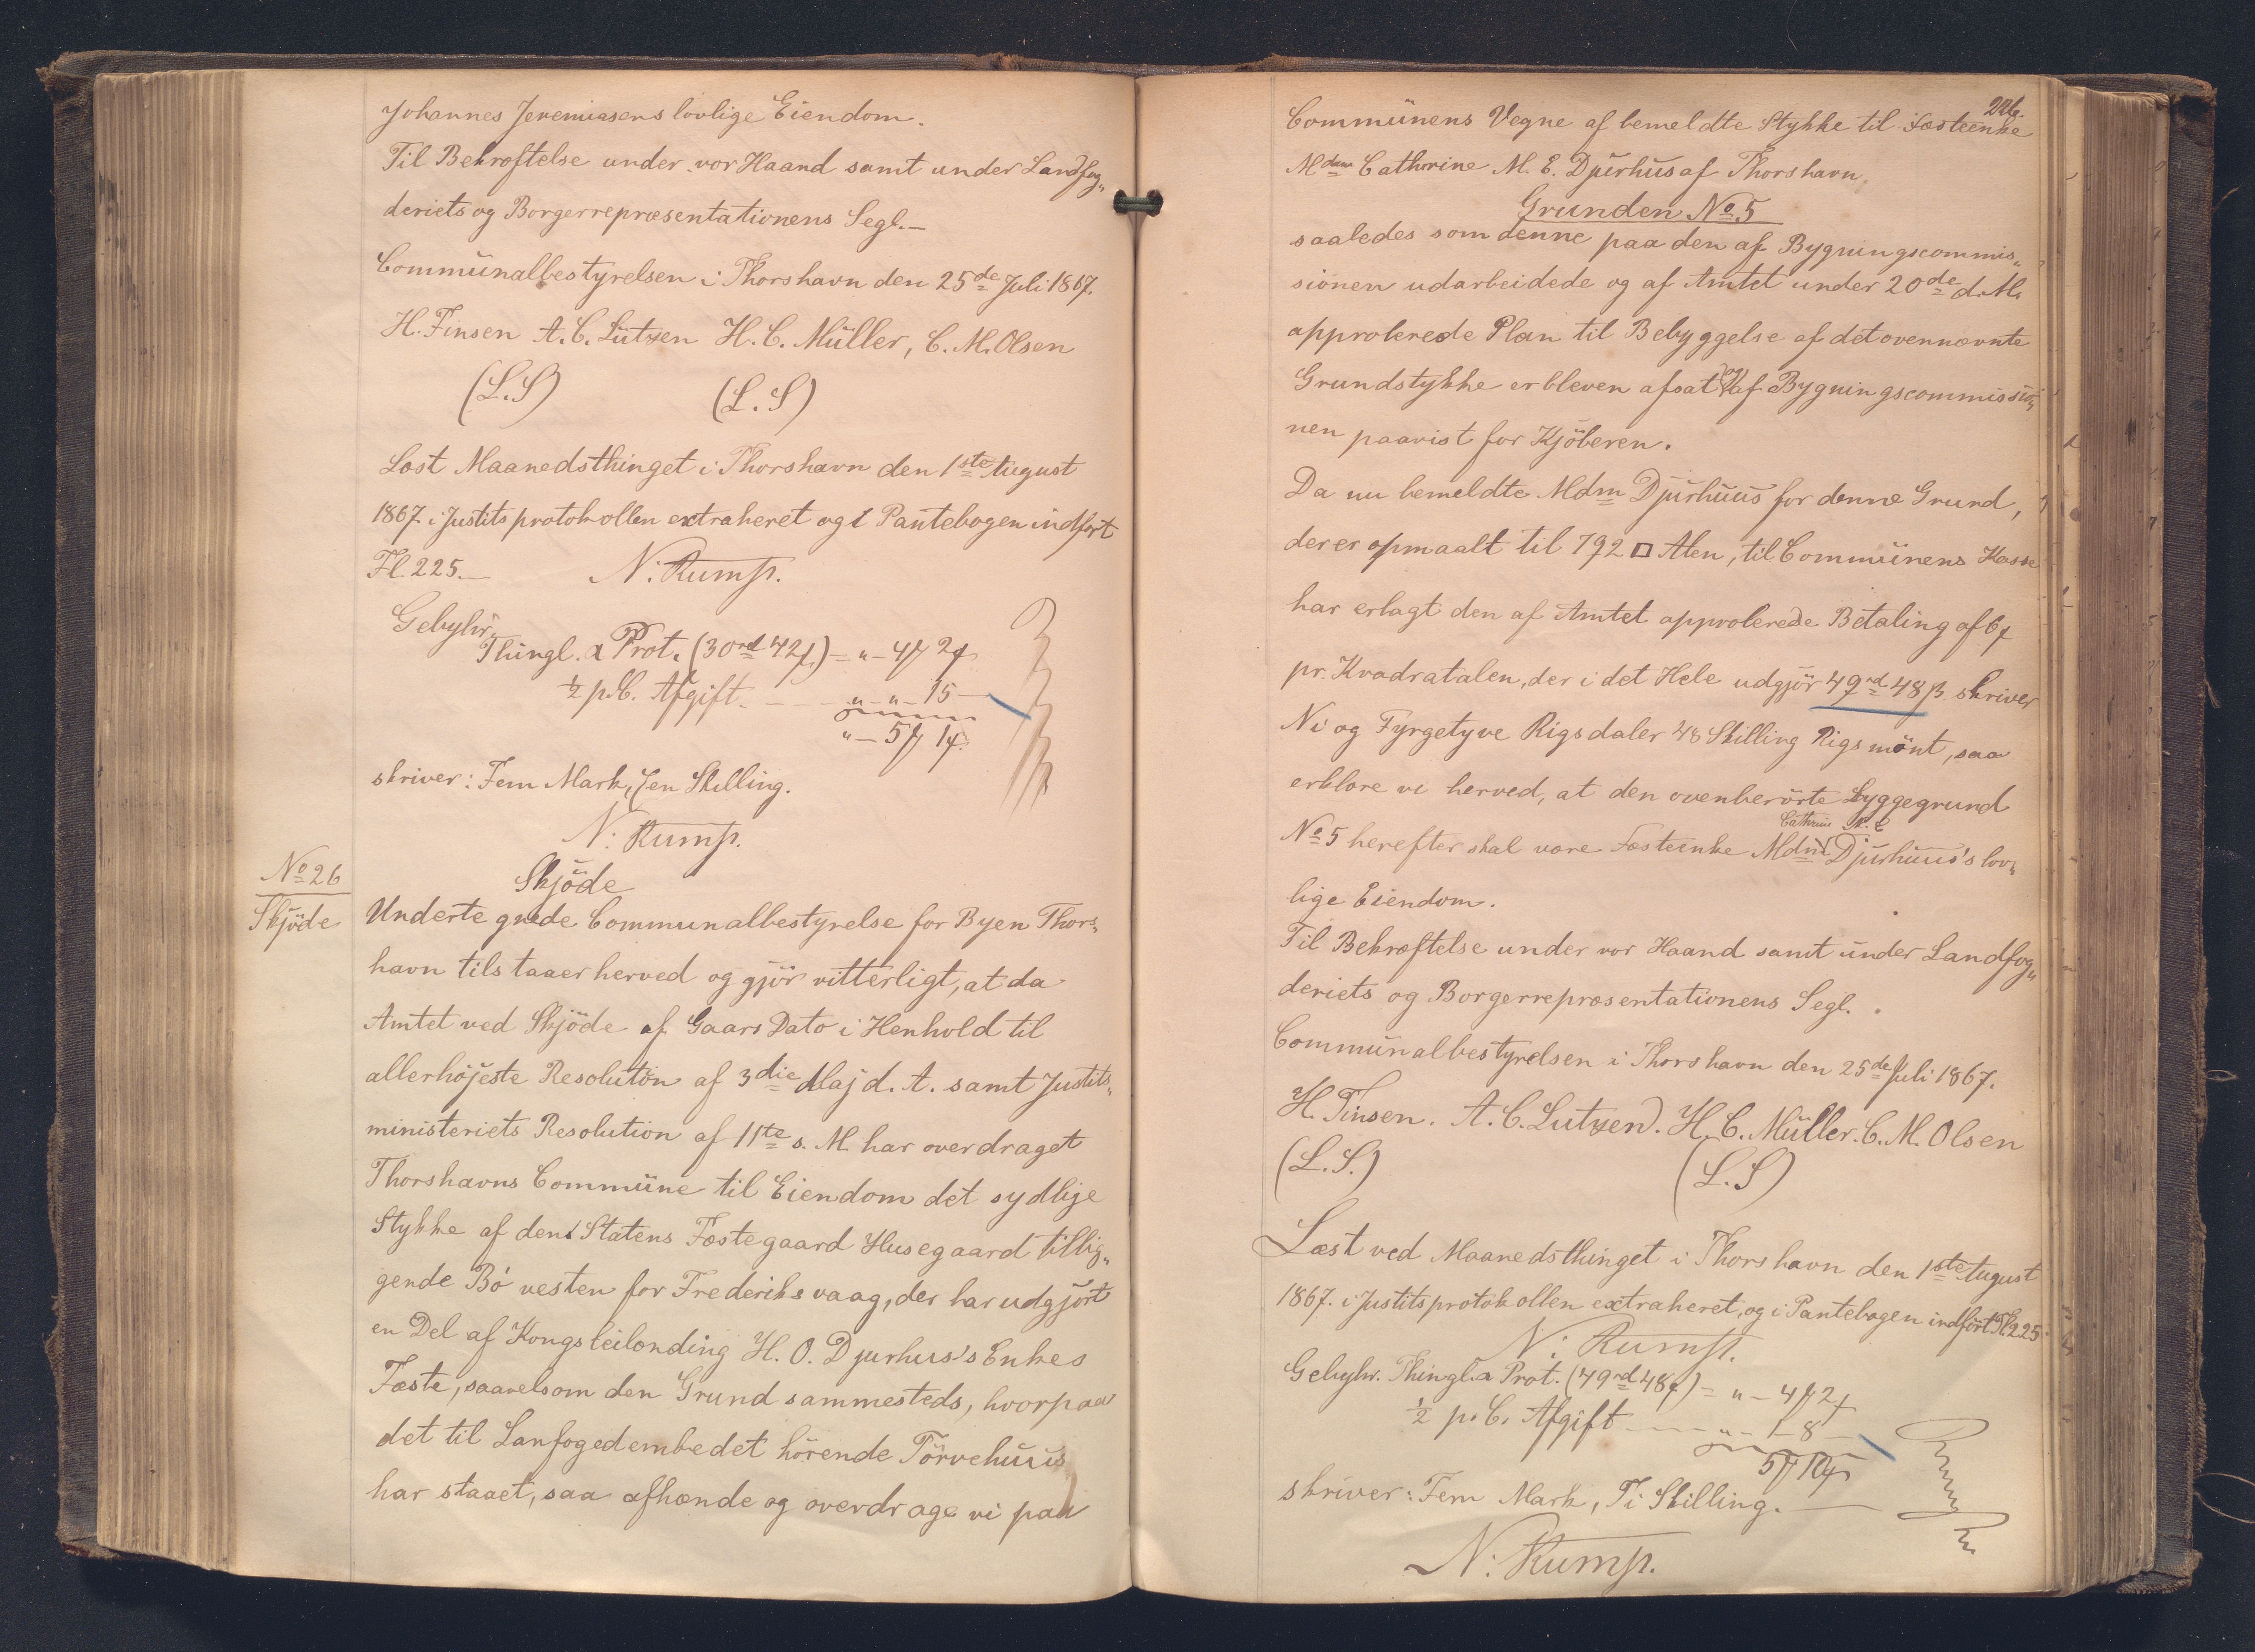 Johannes Jeremiasens lovlige Eiendom.
Til Bekræftelse under vor Haand samt under Landfog„
deriets og Borgerrepræsentationens Segl.—
Commünalbestyrelsen i Thorshavn den 25de Juli 1867.
H. Finsen A. C. Lützen H. C. Müller, C. M. Olsen
(L.S) (L.S)
Læst Maanedsthinget i Thorshavn den 1ste August
1867. i Justitsprotokollen extraheret og i Pantebogen indført
Fl. 225.— N. Rump.
Gebyhr.
Thingl. & Prot. (30rd 42f.) = „ - 4 2
½ p.C. Afgift. — „ - „ - 15 —
„ — 5 1
skriver: Fem Mark, Een Skilling.
N: Rump.
No 26
Skjöde
Skjöde
Undertegnede Communalbestyrelse for Byen Thors„
havn tilstaaer herved og gjör vitterligt, at da
Amtet ved Skjöde af Gaars Dato i Henhold til
allerhöjeste Resolution af 3die Maj d. A. samt Justits„
ministeriets Resolution af 11te s. M. har overdraget
Thorshavns Commüne til Eiendom det sydlige
Stykke af den Statens Fæstegaard Husegaard tillig„
gende Bö vesten for Frederiksvaag, der har udgjört
en Del af Kongsleilænding H. O. Djurhus's Enkes
Fæste, saavelsom den Grund sammesteds, hvorpaa
det til Lanfogedembedet hörende Törvehuus
har staaet, saa afhænde og overdrage vi paa
226.
Commünens Vegne af bemeldte Stykke til Fæsteenke
Mdm Cathrine M. E. Djurhus af Thorshavn
Grunden No 5
saaledes som denne paa den af Bygningscommis„
sionen udarbeidede og af Amtet under 20de d. M.
approberede Plan til Bebyggelse af det ovennævnte
Grundstykke er bleven afsat og af Bygningscommissio„
nen paavist for Kjöberen.
Da nu bemeldte Mdm Djürhuus for denne Grund,
der er opmaalt til 792 □ Alen, til Commünens Kasse
har erlagt den af Amtet approberede Betaling af 6
pr. Kvadratalen, der i det Hele udgjör 49rd 48 ß skriver
Ni og Fyrgetyve Rigsdaler 48 Skilling Rigsmönt, saa
erklære vi herved, at den ovenberörte Byggegrund
Cathrine M. E
No 5 herefter skal være Fæsteenke Mdm Djurhuus's lov„
lige Eiendom.
Til Bekræftelse under vor Haand samt under Landfog„
deriets og Borgerrepræsentationens Segl.
Commünalbestyrelsen i Thorshavn den 25de Juli 1867.
H. Finsen. A. C. Lutzen. H. C. Müller. C. M. Olsen
(L.S.) (L.S)
Læst ved Maanedsthinget i Thorshavn den 1ste August
1867. i Justitsprotokollen extraheret, og i Pantebogen indført Fl. 225
N: Rump.
Gebyhr. Thingl. & Prot. (49rd 48) = „ - 4 2
½ p. C. Afgift — „ - 1 - 8 —
5 10
skriver: Fem Mark, Ti Skilling. —
N: Rump.